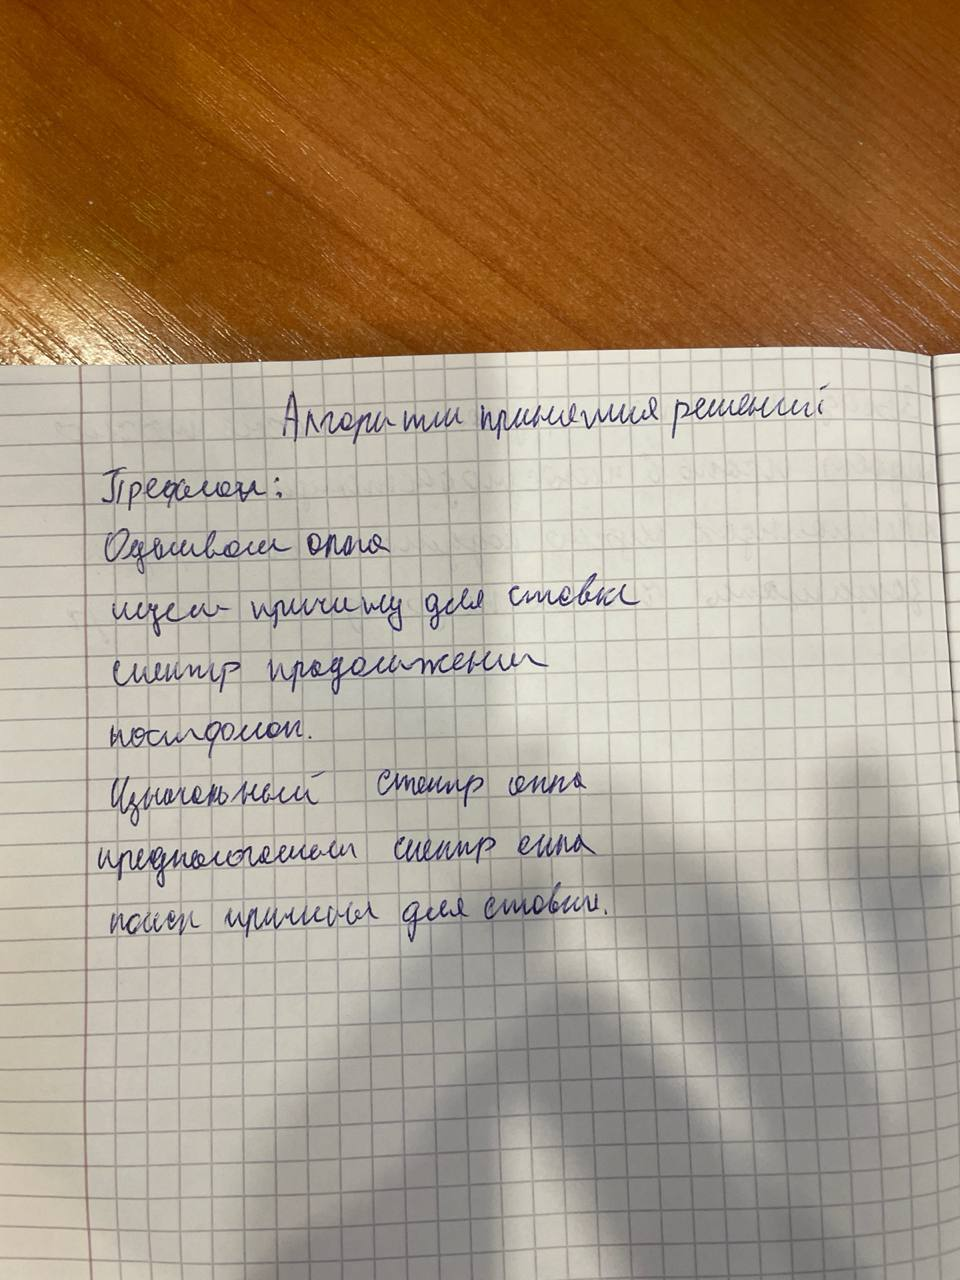 Алгоритм принятия решений
Префлоп:
Оцениваем оппа
ищем причину для ставки
спектр продолжения
постфлоп.
Изначальный спектр оппа
предполагаем спектр оппа
поиск причины для ставки.